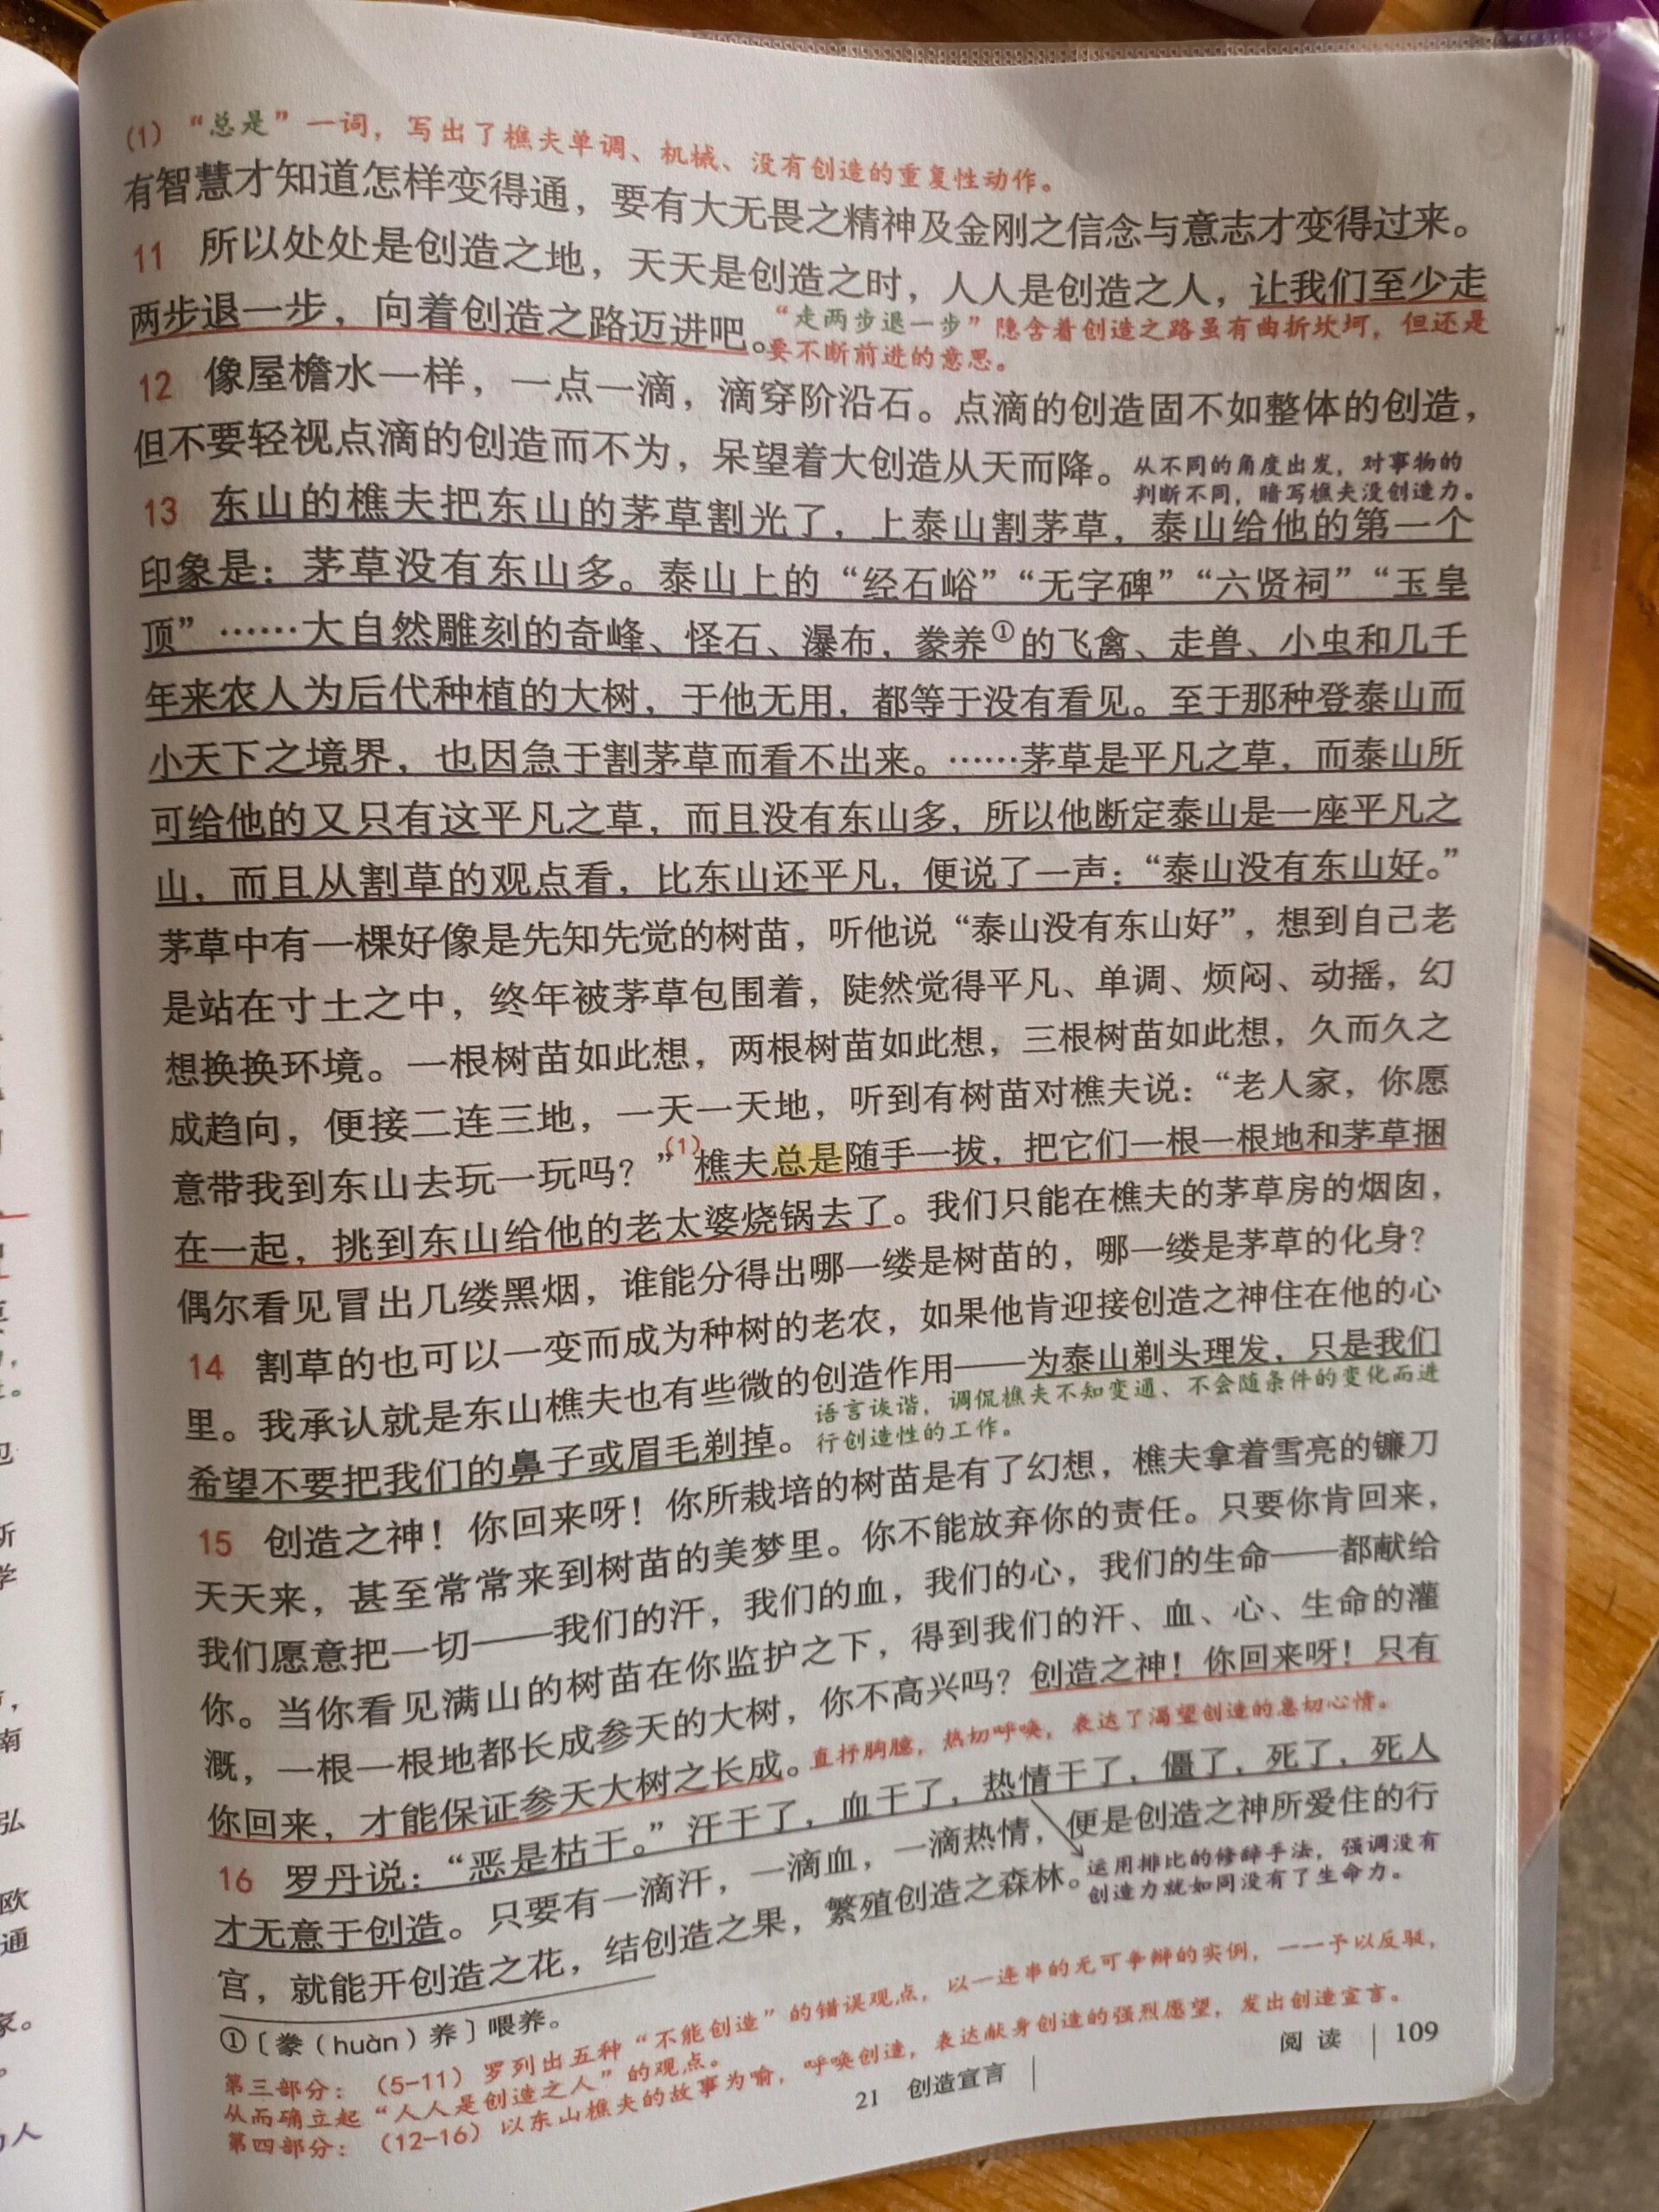 (1)“总是”一词，写出了樵夫单调、机械、没有创造的重复性动作。
有智慧才知道怎样变得通，要有大无畏之精神及金刚之信念与意志才变得过来。
11 所以处处是创造之地，天天是创造之时，人人是创造之人，让我们至少走
两步退一步，向着创造之路迈进吧。
“走两步退一步”隐含着创造之路虽有曲折坎坷，但还是
要不断前进的意思。
12 像屋檐水一样，一点一滴，滴穿阶沿石。点滴的创造固不如整体的创造，
但不要轻视点滴的创造而不为，呆望着大创造从天而降。
从不同的角度出发，对事物的
判断不同，暗写樵夫没创造力。
13 东山的樵夫把东山的茅草割光了，上泰山割茅草，泰山给他的第一个
印象是：茅草没有东山多。泰山上的“经石峪”“无字碑”“六贤祠”“玉皇
顶”……大自然雕刻的奇峰、怪石、瀑布，豢养①的飞禽、走兽、小虫和几千
年来农人为后代种植的大树，于他无用，都等于没有看见。至于那种登泰山而
小天下之境界，也因急于割茅草而看不出来。……茅草是平凡之草，而泰山所
可给他的又只有这平凡之草，而且没有东山多，所以他断定泰山是一座平凡之
山，而且从割草的观点看，比东山还平凡，便说了一声：“泰山没有东山好。”
茅草中有一棵好像是先知先觉的树苗，听他说“泰山没有东山好”，想到自己老
是站在寸土之中，终年被茅草包围着，陡然觉得平凡、单调、烦闷、动摇，幻
想换换环境。一根树苗如此想，两根树苗如此想，三根树苗如此想，久而久之
成趋向，便接二连三地，一天一天地，听到有树苗对樵夫说：“老人家，你愿
意带我到东山去玩一玩吗？”(1)樵夫总是随手一拔，把它们一根一根地和茅草捆
在一起，挑到东山给他的老太婆烧锅去了。我们只能在樵夫的茅草房的烟囱，
偶尔看见冒出几缕黑烟，谁能分得出哪一缕是树苗的，哪一缕是茅草的化身？
14 割草的也可以一变而成为种树的老农，如果他肯迎接创造之神住在他的心
里。我承认就是东山樵夫也有些微的创造作用——为泰山剃头理发，只是我们
希望不要把我们的鼻子或眉毛剃掉。
语言诙谐，调侃樵夫不知变通、不会随条件的变化而进
行创造性的工作。
15 创造之神！你回来呀！你所栽培的树苗是有了幻想，樵夫拿着雪亮的镰刀
天天来，甚至常常来到树苗的美梦里。你不能放弃你的责任。只要你肯回来，
我们愿意把一切——我们的汗，我们的血，我们的心，我们的生命——都献给
你。当你看见满山的树苗在你监护之下，得到我们的汗、血、心、生命的灌
溉，一根一根地都长成参天的大树，你不高兴吗？创造之神！你回来呀！只有
你回来，才能保证参天大树之长成。
直抒胸臆，热切呼唤，表达了渴望创造的急切心情。
16 罗丹说：“恶是枯干。”汗干了，血干了，热情干了，僵了，死了，死人
才无意于创造。只要有一滴汗，一滴血，一滴热情，便是创造之神所爱住的行
宫，就能开创造之花，结创造之果，繁殖创造之森林。
运用排比的修辞手法，强调没有
创造力就如同没有了生命力。
①〔豢（huàn）养〕喂养。
第三部分：（5-11）罗列出五种“不能创造”的错误观点，以一连串的无可争辩的实例，一一予以反驳，
从而确立起“人人是创造之人”的观点。
第四部分：（12-16）以东山樵夫的故事为喻，呼唤创造，表达献身创造的强烈愿望，发出创造宣言。
21 创造宣言
阅读 109